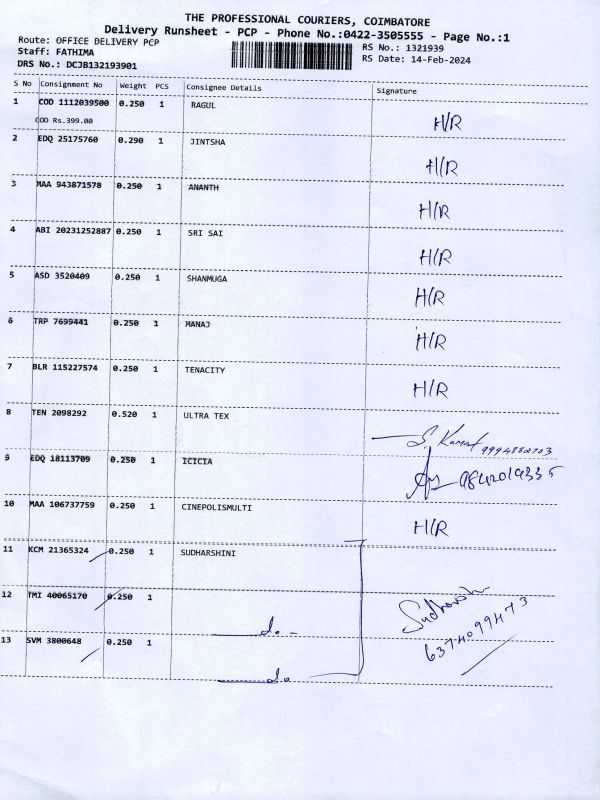 THE PROFESSIONAL COURIERS, COIMBATORE
Delivery Runsheet - PCP - Phone No.:0422-3505555 - Page No.:1
Route: OFFICE DELIVERY PCP
RS No.: 1321939
Staff: FATHIMA
RS Date: 14-Feb-2024
DRS No.: DCJB132193901
S No Consignment No Weight PCS Consignee Details Signature
1 COD 1112039500 0.250 1 RAGUL H/R
COD Rs.399.00
2 EDQ 25175760 0.290 1 JINTSHA H/R
3 MAA 943871578 0.250 1 ANANTH H/R
4 ABI 20231252887 0.250 1 SRI SAI H/R
5 ASD 3520409 0.250 1 SHANMUGA H/R
6 TRP 7699441 0.250 1 MANAJ H/R
7 BLR 115227574 0.250 1 TENACITY H/R
8 TEN 2098292 0.520 1 ULTRA TEX S. Kamal 9994882703
9 EDQ 18113709 0.250 1 ICICIA 9842019335
10 MAA 106737759 0.250 1 CINEPOLISMULTI H/R
11 KCM 21365324 0.250 1 SUDHARSHINI
12 TMI 40065170 0.250 1 do -
13 SVM 3800648 0.250 1 do
6374099473